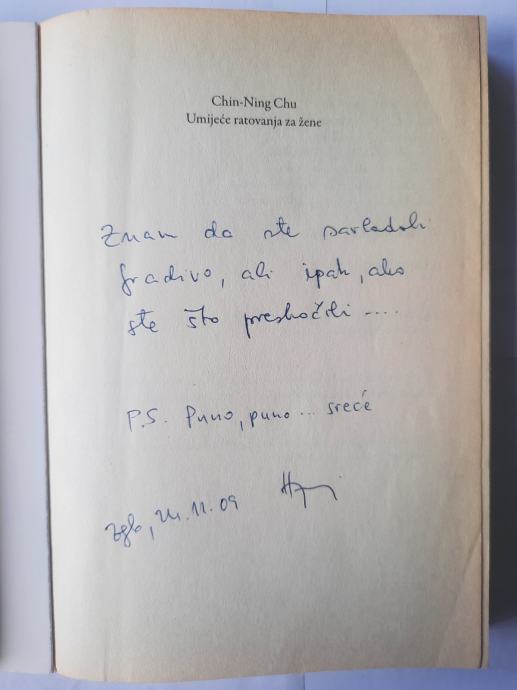 Chin-Ning Chu
Umijeće ratovanja za žene
Znam da ste savladali
gradivo, ali ipak, ako
ste što preskočili ....
P.S. Puno, puno ... sreće
11.09